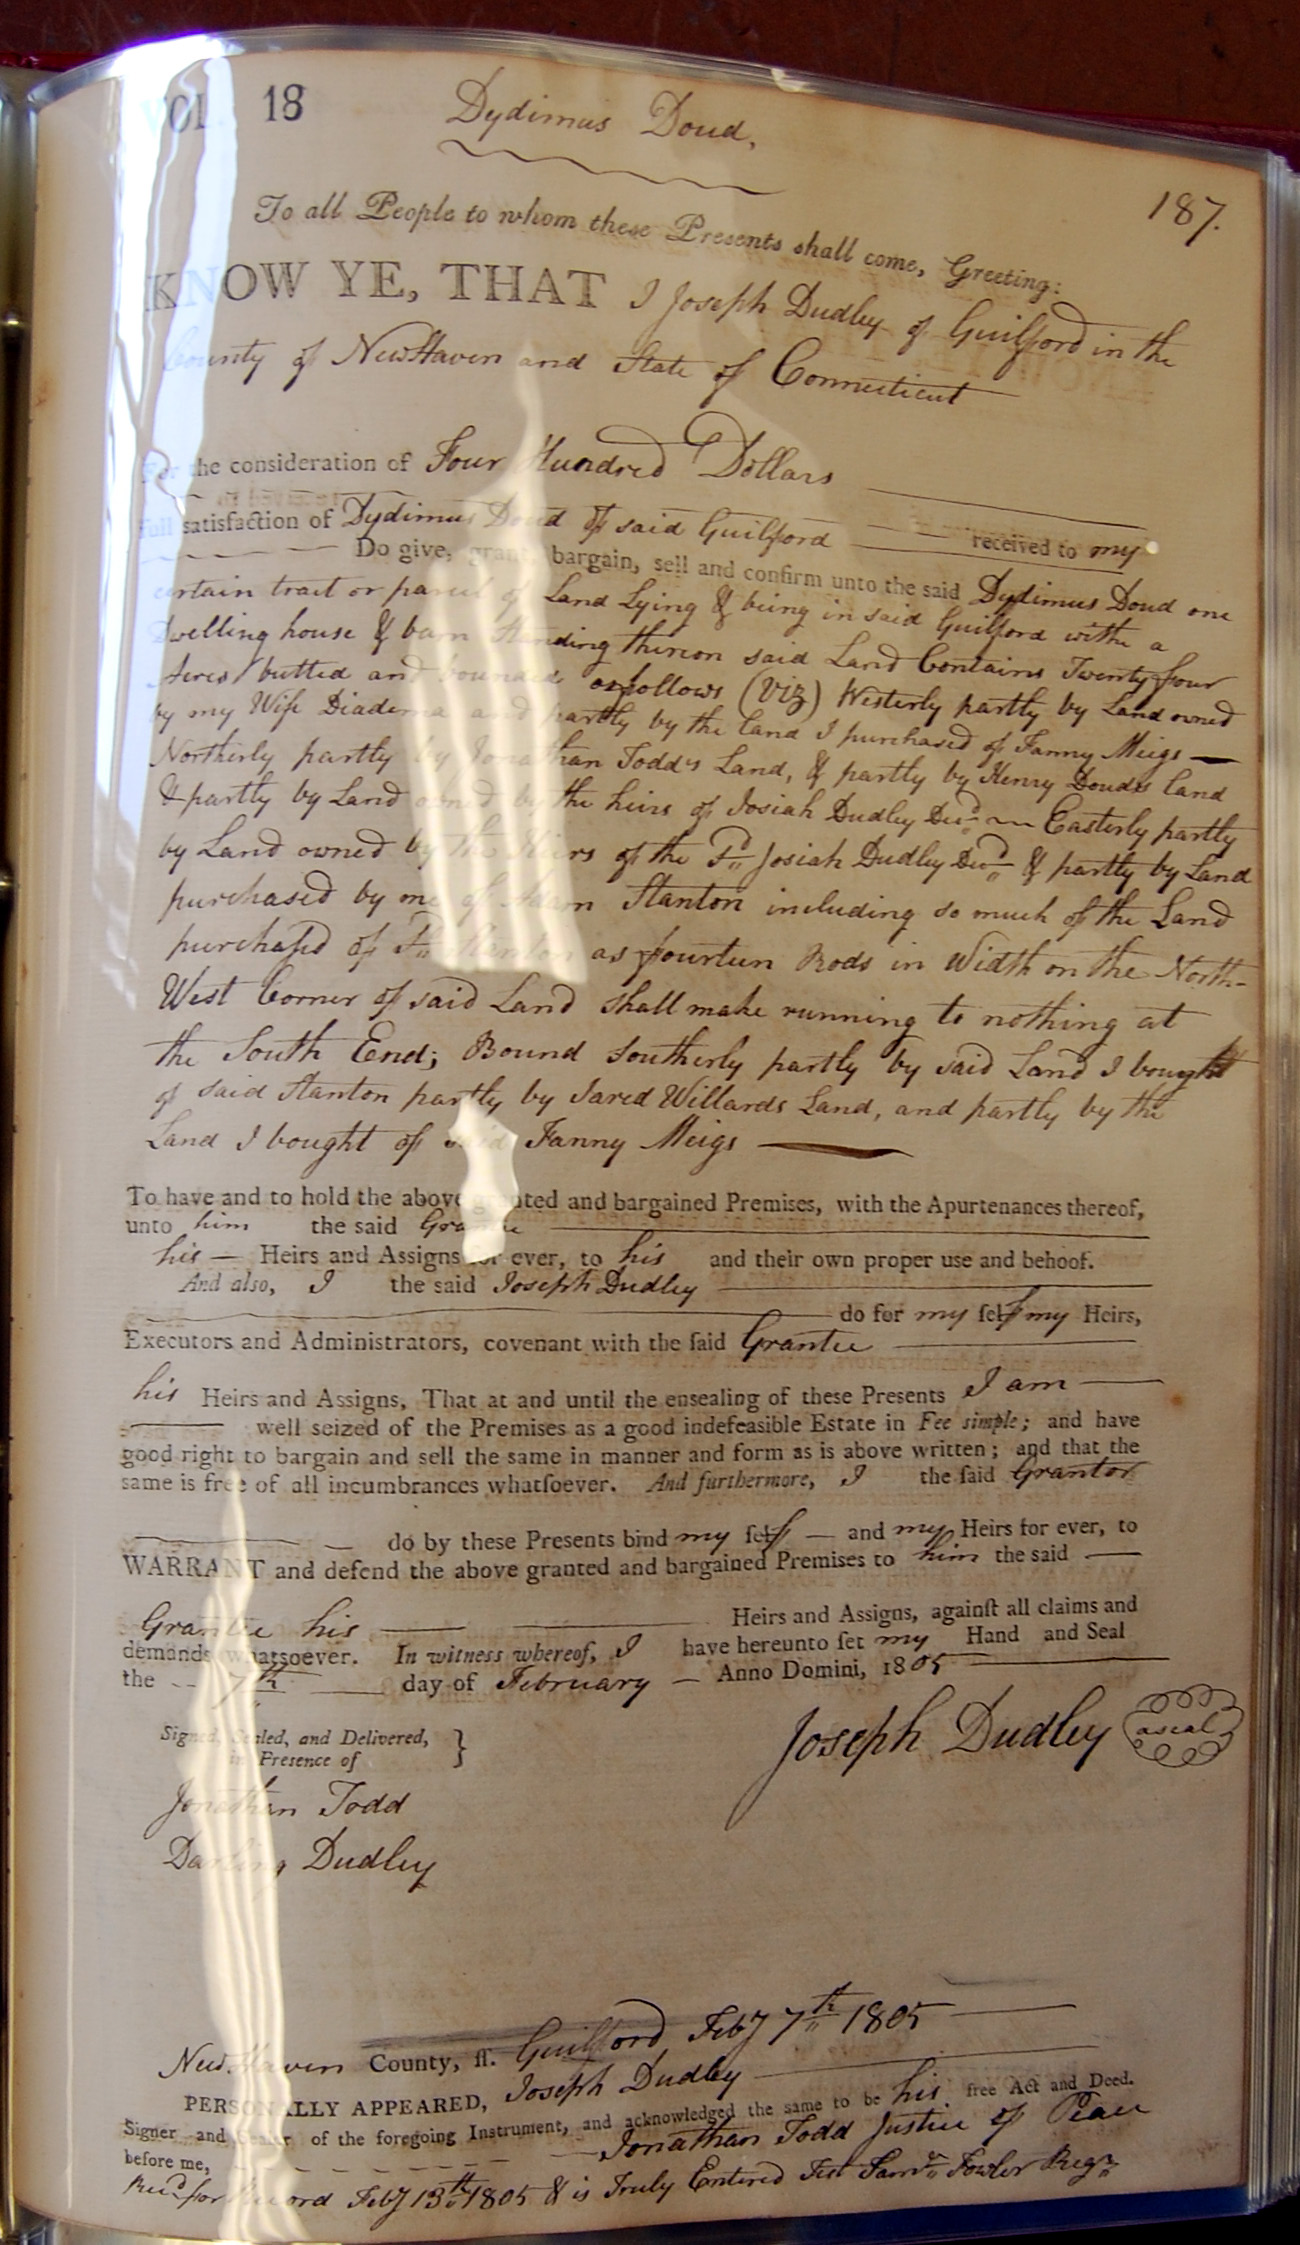 VOL. 18
Dydimus Doud,
187.
To all People to whom these Presents shall come, Greeting:
KNOW YE, THAT I Joseph Dudley of Guilford in the
County of NewHaven and State of Connecticut
For the consideration of Four Hundred Dollars
received to my
full satisfaction of Dydimus Doud of said Guilford
Do give, grant bargain, sell and confirm unto the said Dydimus Doud one
certain tract or parcel of Land Lying & being in said Guilford withe a
Dwelling house & barn Standing thereon said Land Contains Twenty four
Acres butted and bounded as follows (Viz) Westerly partly by Land owned
by my Wife Diadema and partly by the land I purchased of Fanny Meigs —
Northerly partly by Jonathan Todd's Land, & partly by Henry Douds land
& partly by Land owned by the heirs of Josiah Dudley Decd — Easterly partly
by Land owned by the Heirs of the Sd Josiah Dudley Decd & partly by Land
purchased by me of Adam Stanton including so much of the Land
purchased of Sd Stanton as fourteen Rods in Width on the North-
West Corner of said Land shall make running to nothing at
the South End; Bound Southerly partly by said Land I bought
of said Stanton partly by Jared Willards Land, and partly by the
Land I bought of said Fanny Meigs —
To have and to hold the above granted and bargained Premises, with the Apurtenances thereof,
unto him the said Grantee
his — Heirs and Assigns for ever, to his and their own proper use and behoof.
And also, I the said Joseph Dudley
do for my ſelf my Heirs,
Executors and Administrators, covenant with the ſaid Grantee
his Heirs and Assigns, That at and until the ensealing of these Presents I am
well seized of the Premises as a good indefeasible Estate in Fee simple; and have
good right to bargain and sell the same in manner and form as is above written; and that the
same is free of all incumbrances whatſoever. And furthermore, I the ſaid Grantor
do by these Presents bind my ſelf — and my Heirs for ever, to
WARRANT and defend the above granted and bargained Premises to him the said —
Grantee his Heirs and Assigns, againſt all claims and
demands whatsoever. In witness whereof, I have hereunto ſet my Hand and Seal
the 7th day of February — Anno Domini, 1805
Signed, Sealed, and Delivered, }
in Presence of
Joseph Dudley aseal
Jonathan Todd
Darling Dudley
New Haven County, ſſ. Guilford Feby 7th 1805
PERSONALLY APPEARED, Joseph Dudley
Signer and Sealer of the foregoing Instrument, and acknowledged the same to be his free Act and Deed.
before me, Jonathan Todd Justice of Peace
Recd for Record Feby 13th 1805 & is Truly Entered Test Saml Fowler Regr